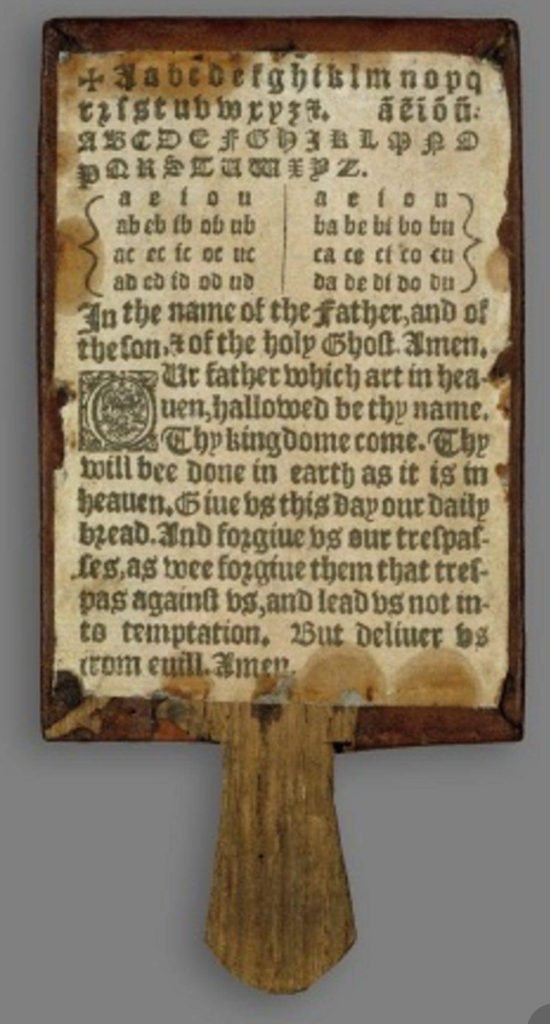 ✠ A a b c d e f g h i k l m n o p q
r ꝛ ſ s t u v w x y z ⁊. ã ẽ ĩ õ ũ:
A B C D E F G H I K L M N O
P Q R S T U W X Y Z.
a e i o u a e i o u
ab eb ib ob ub ba be bi bo bu
ac ec ic oc uc ca ce ci co cu
ad ed id od ud da de di do du
In the name of the Father,and of
the ſon,⁊ of the holy Ghoſt. Amen.
OUr father which art in hea-
uen,hallowed be thy name.
Thy kingdome come. Thy
will bee done in earth as it is in
heauen. Giue vs this day our daily
bꝛead. And foꝛgiue vs our treſpaſ-
ſes,as wee foꝛgiue them that treſ-
pas againſt vs,and lead vs not in-
to temptation. But deliuer vs
from euill. Amen.